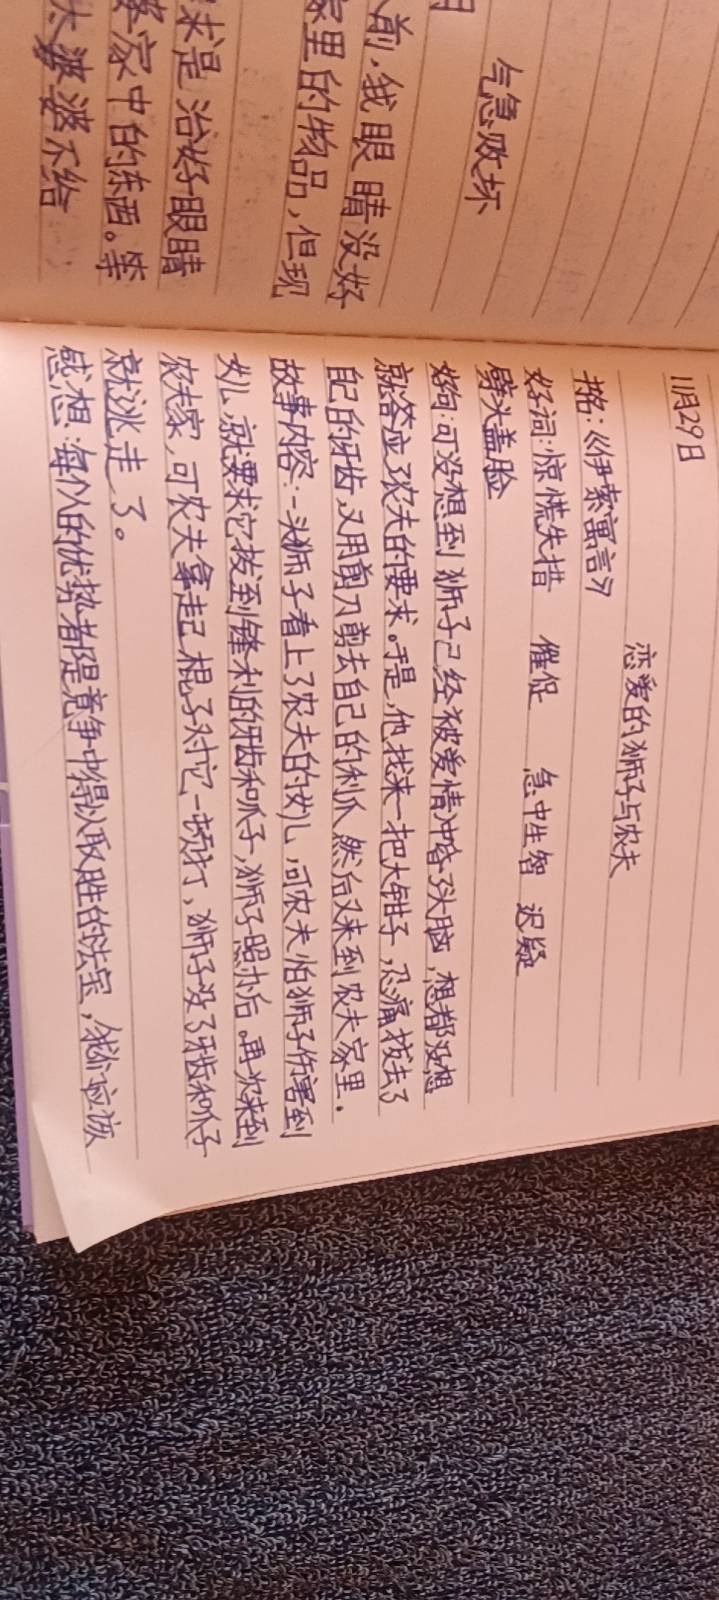 日
气急败坏
前，我眼睛没好
家里的物品，但现
求是治好眼睛
家中的东西。等
太婆婆不给
11月29日
恋爱的狮子与农夫
书名：《伊索寓言》
好词：惊慌失措 催促 急中生智 迟疑
劈头盖脸
好句：可没想到狮子已经被爱情冲昏了头脑，想都没想
就答应了农夫的要求。于是，他找来一把大钳子，忍痛拔去了
自己的牙齿，又用剪刀剪去自己的利爪，然后又来到农夫家里。
故事内容：一头狮子看上了农夫的女儿，可农夫怕狮子伤害到
女儿，就要求它拔到锋利的牙齿和爪子，狮子照办后。再次来到
农夫家，可农夫拿起棍子对它一顿打，狮子没了牙齿和爪子
就逃走了。
感想：每个人的优势都是竞争中得以取胜的法宝，我们应该